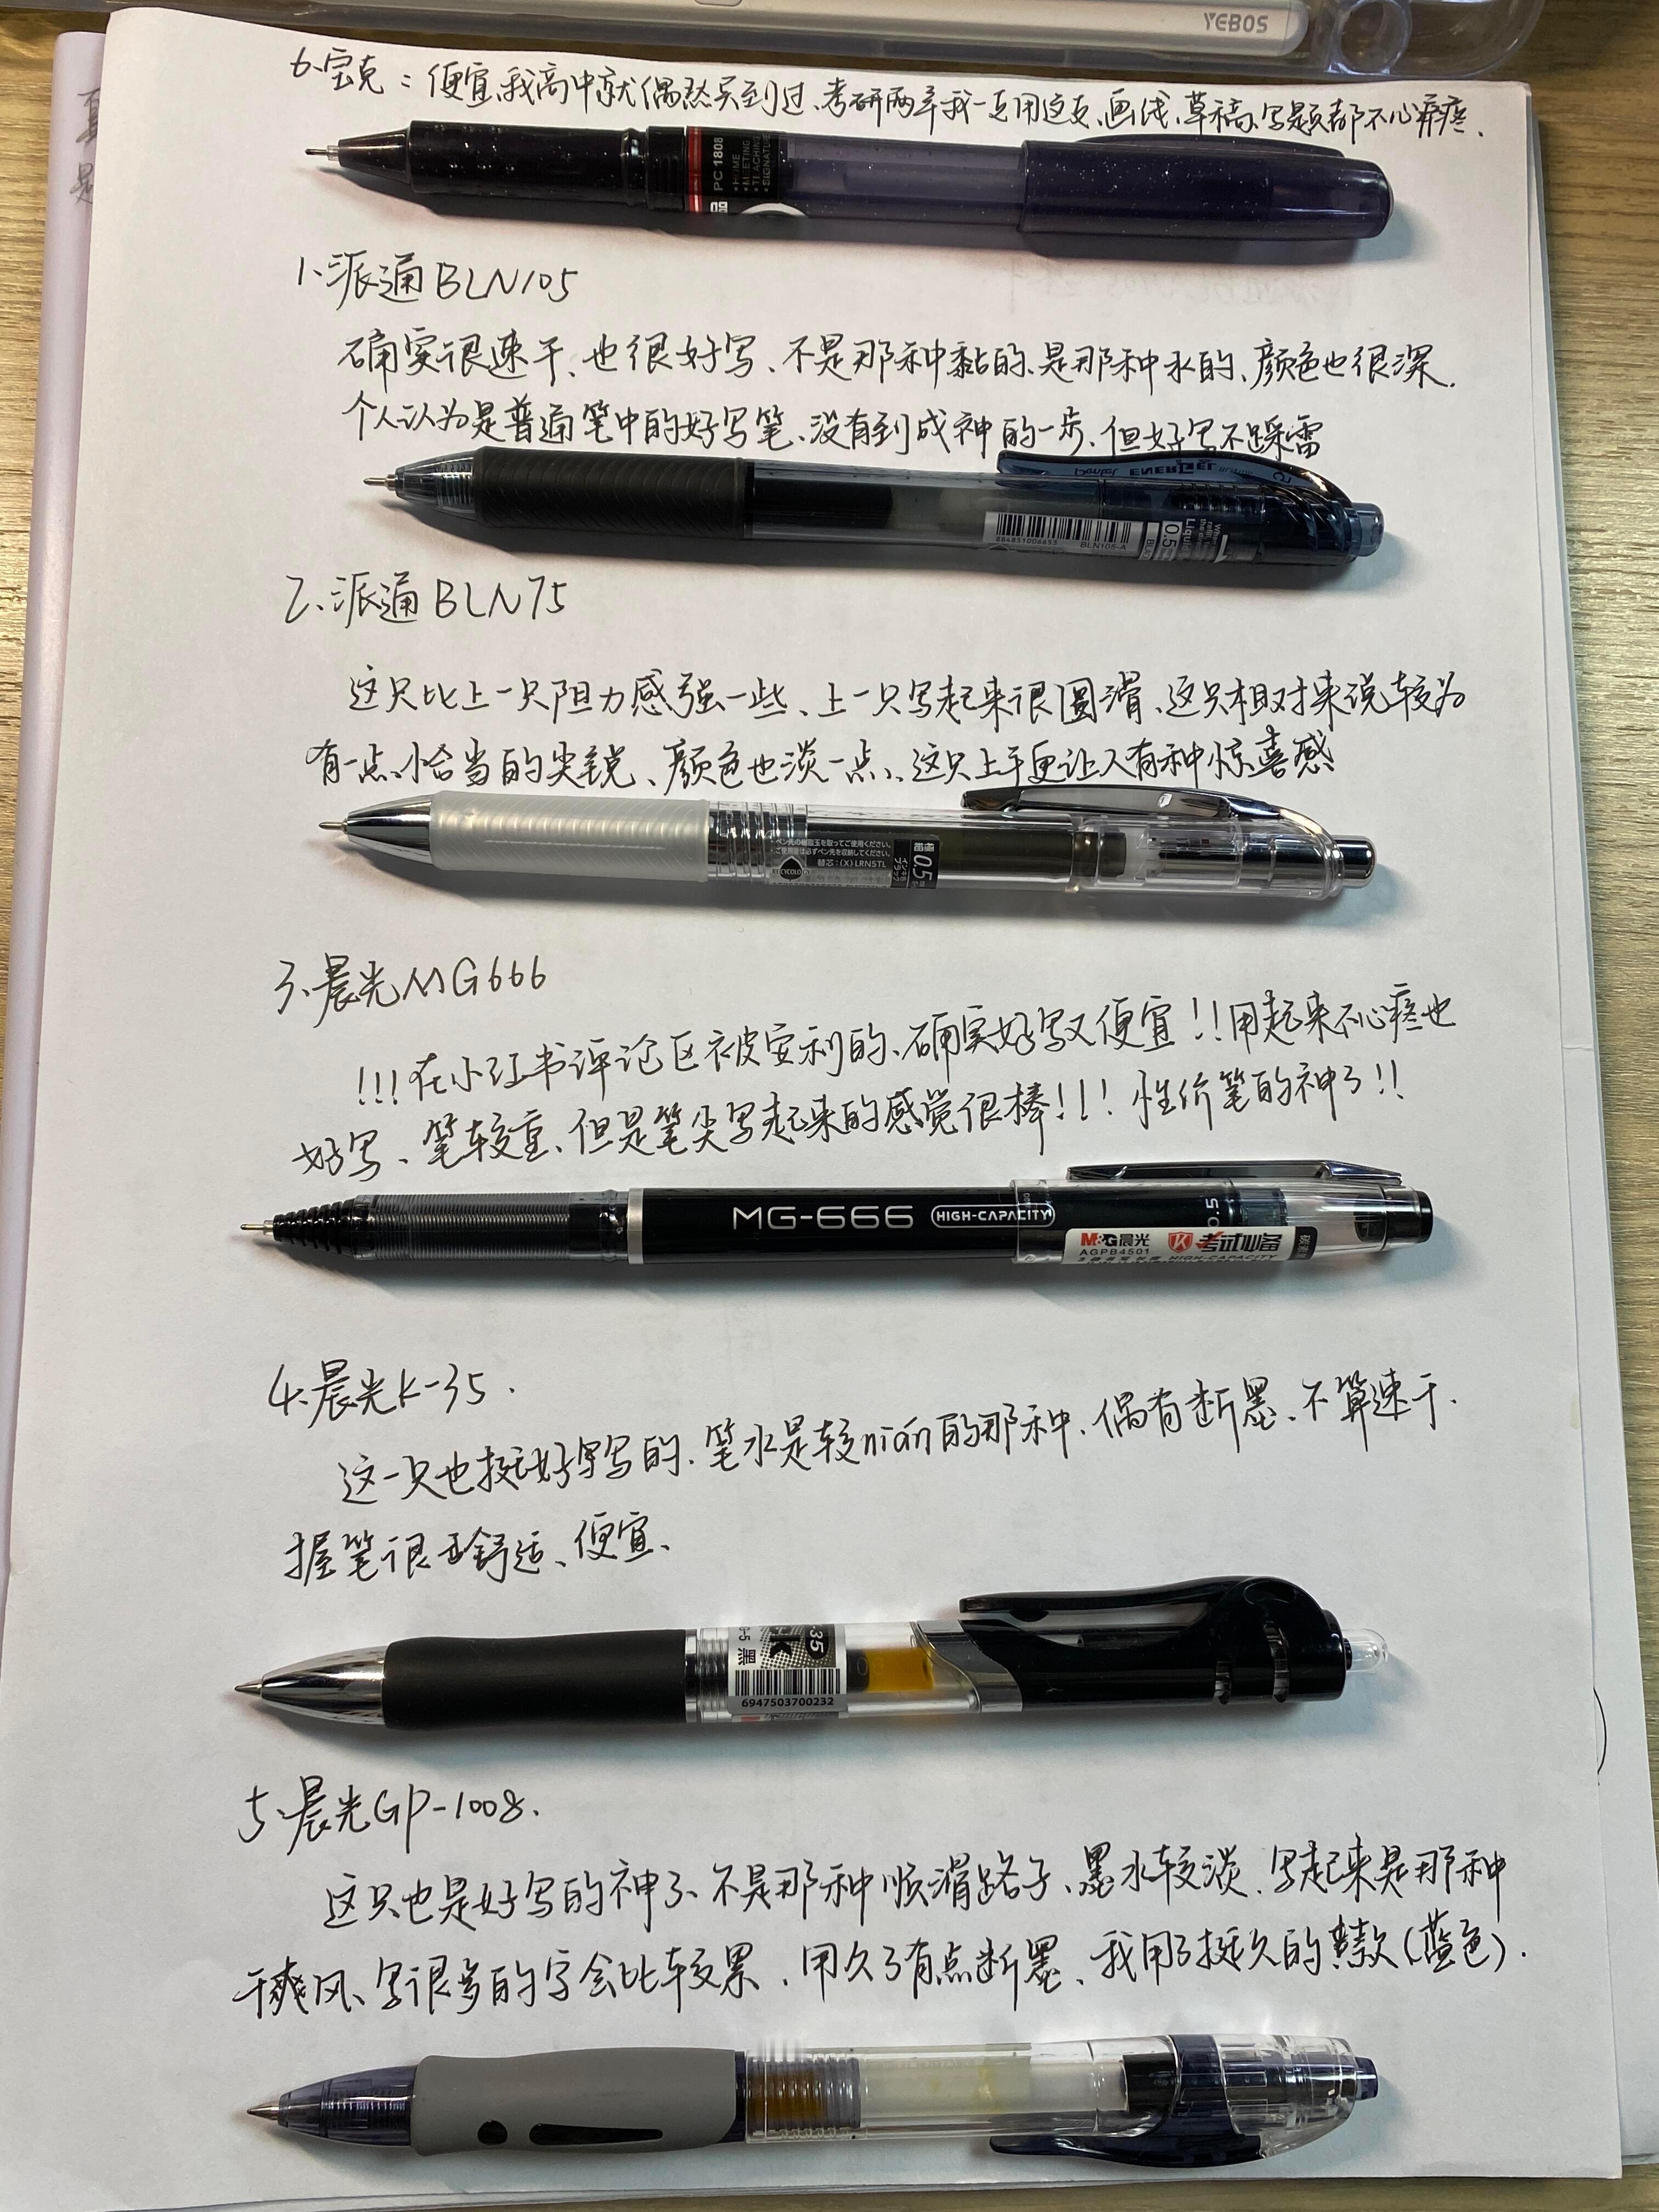 YEBOS
6、宝克：便宜、我高中就偶然买到过、考研两年我一直用这支、画线、草稿、写题都不心疼疼.
PC 1808
•HOME
•MEETING
•TEACHING
•SIGNATURE
1、派通BLN105
确实很速干、也很好写、不是那种黏的、是那种水的、颜色也很深.
个人认为是普通笔中的好写笔、没有到成神的一步、但好写不踩雷
Pentel ENERGEL
884851006653 BLN105-A
0.5
2、派通BLN75
这只比上一只阻力感强一些、上一只写起来很圆滑、这只相对来说较为
有一点恰当的尖锐、颜色也淡一点、这只上手更让人有种惊喜感
・ペン先の樹脂玉を取ってご使用ください。
・ご使用後は必ずペン先を収納してください。
替芯：(X) LRN5TL
極細 0.5
インキ色 ブラック
3、晨光MG666
!!!在小红书评论区被安利的、确实好写又便宜!!用起来不心疼也
好写、笔较重、但是笔尖写起来的感觉很棒!!! 性价笔的神了!!
MG-666 HIGH-CAPACITY
0.5
M&G晨光 K 考试必备
AGPB4501 HIGH-CAPACITY
4、晨光K-35.
这一只也挺好写的、笔水是较nián的那种、偶有断墨、不算速干.
握笔很舒适、便宜、
K-35
黑
6947503700232
5、晨光GP-1008.
这只也是好写的神了、不是那种顺滑路子、墨水较淡、写起来是那种
干爽风、写很多的字会比较累、用久了有点断墨、我用了挺久的一款(蓝色).